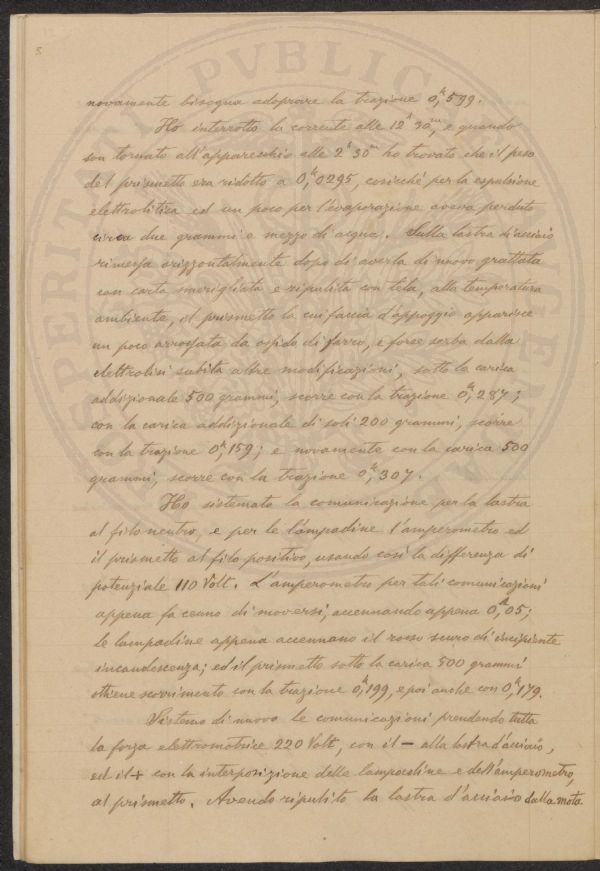 8.
novamente bisogna adoprare la trazione 0,ᵏ599.
Ho interrotto la corrente alle 12ʰ 30ᵐ, e quando
son tornato all'apparecchio alle 2ʰ 30ᵐ ho trovato che il peso
del prismetto era ridotto a 0,ᵏ0295, cosicché per la espulsione
elettrolitica ed un poco per l'evaporazione aveva perduto
circa due grammi e mezzo di acqua. Sulla lastra d'acciaio
rimessa orizzontalmente dopo di averla di nuovo grattata
con carta smerigliata e ripulita con tela, alla temperatura
ambiente, il prismetto la cui faccia d'appoggio apparisce
un poco arrossata da ossido di ferro, e forse serba dalla
elettrolisi subita altre modificazioni, sotto la carica
addizionale 500 grammi, scorre con la trazione 0,ᵏ287;
con la carica addizionale di soli 200 grammi, scorre
con la trazione 0,ᵏ159; e novamente con la carica 500
grammi, scorre con la trazione 0,ᵏ307.
Ho sistemato la comunicazione per la lastra
al filo neutro, e per le lampadine l'amperometro ed
il prismetto al filo positivo, usando così la differenza di
potenziale 110 Volt. L'amperometro per tali comunicazioni
appena fa cenno di moversi, accennando appena 0,ᴬ05;
le lampadine appena accennano il rosso scuro di incipiente
incandescenza; ed il prismetto sotto la carica 500 grammi
ottiene scorrimento con la trazione 0,ᵏ199, e poi anche con 0,ᵏ179.
Sistemo di nuovo le comunicazioni prendendo tutta
la forza elettromotrice 220 Volt, con il – alla lastra d'acciaio,
ed il + con la interposizione delle lampadine e dell'amperometro,
al prismetto. Avendo ripulito la lastra d'acciaio dalla mota
PVBLICAE